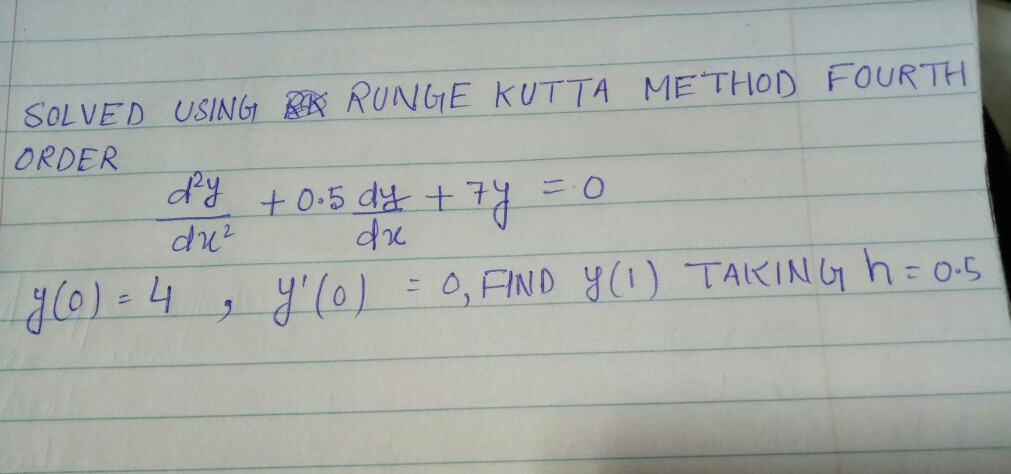 SOLVED USING RUNGE KUTTA METHOD FOURTH
ORDER
d²y/dx² + 0.5 dy/dx + 7y = 0
y(0) = 4 , y'(0) = 0, FIND y(1) TAKING h = 0.5